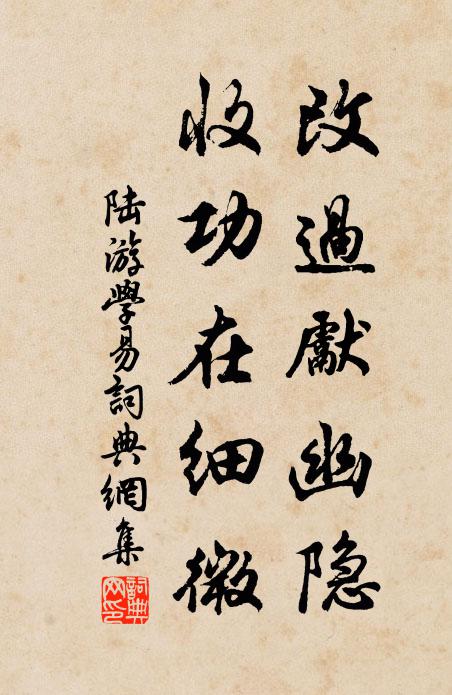 改過獻幽隐
收功在细微
陆游學易詞典網集
詞典网印